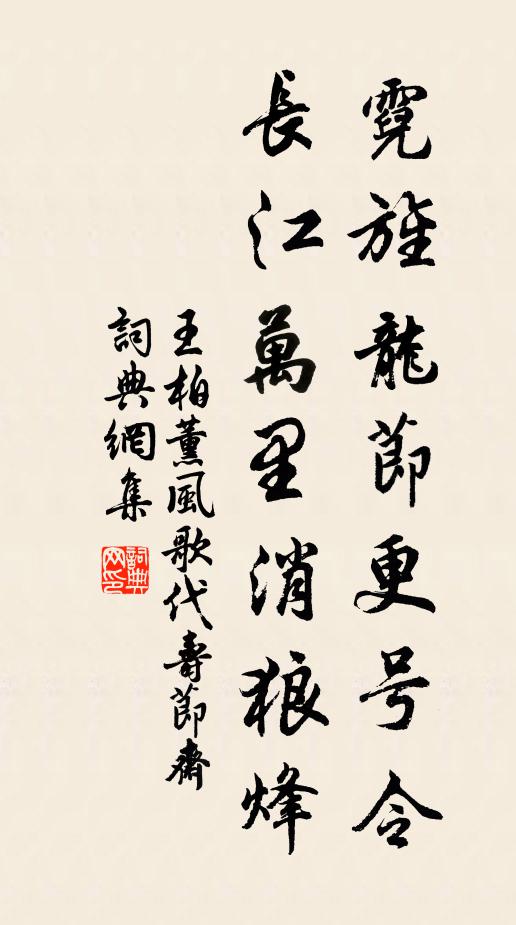 霓旌龍節更号令
長江萬里消狼烽
王柏薰風歌代壽節齋
詞典網集
詞典網印